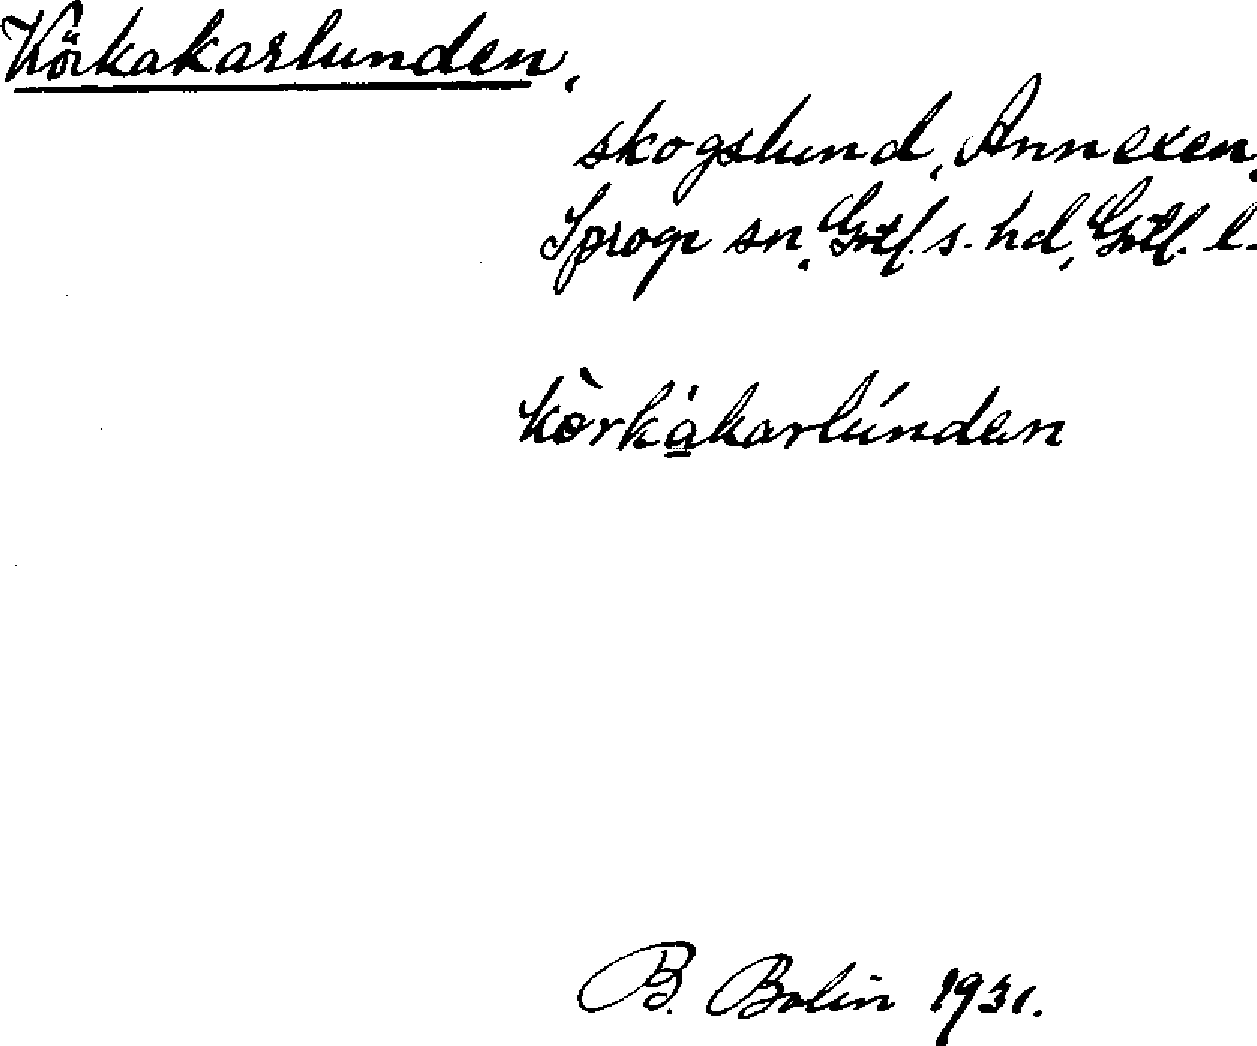 Körkakarlunden,
skogslund, Annexen,
Sproge sn, Gotl. s. hd, Gotl. l.
kòrkàkarlúnden
B. Bolin 1931.